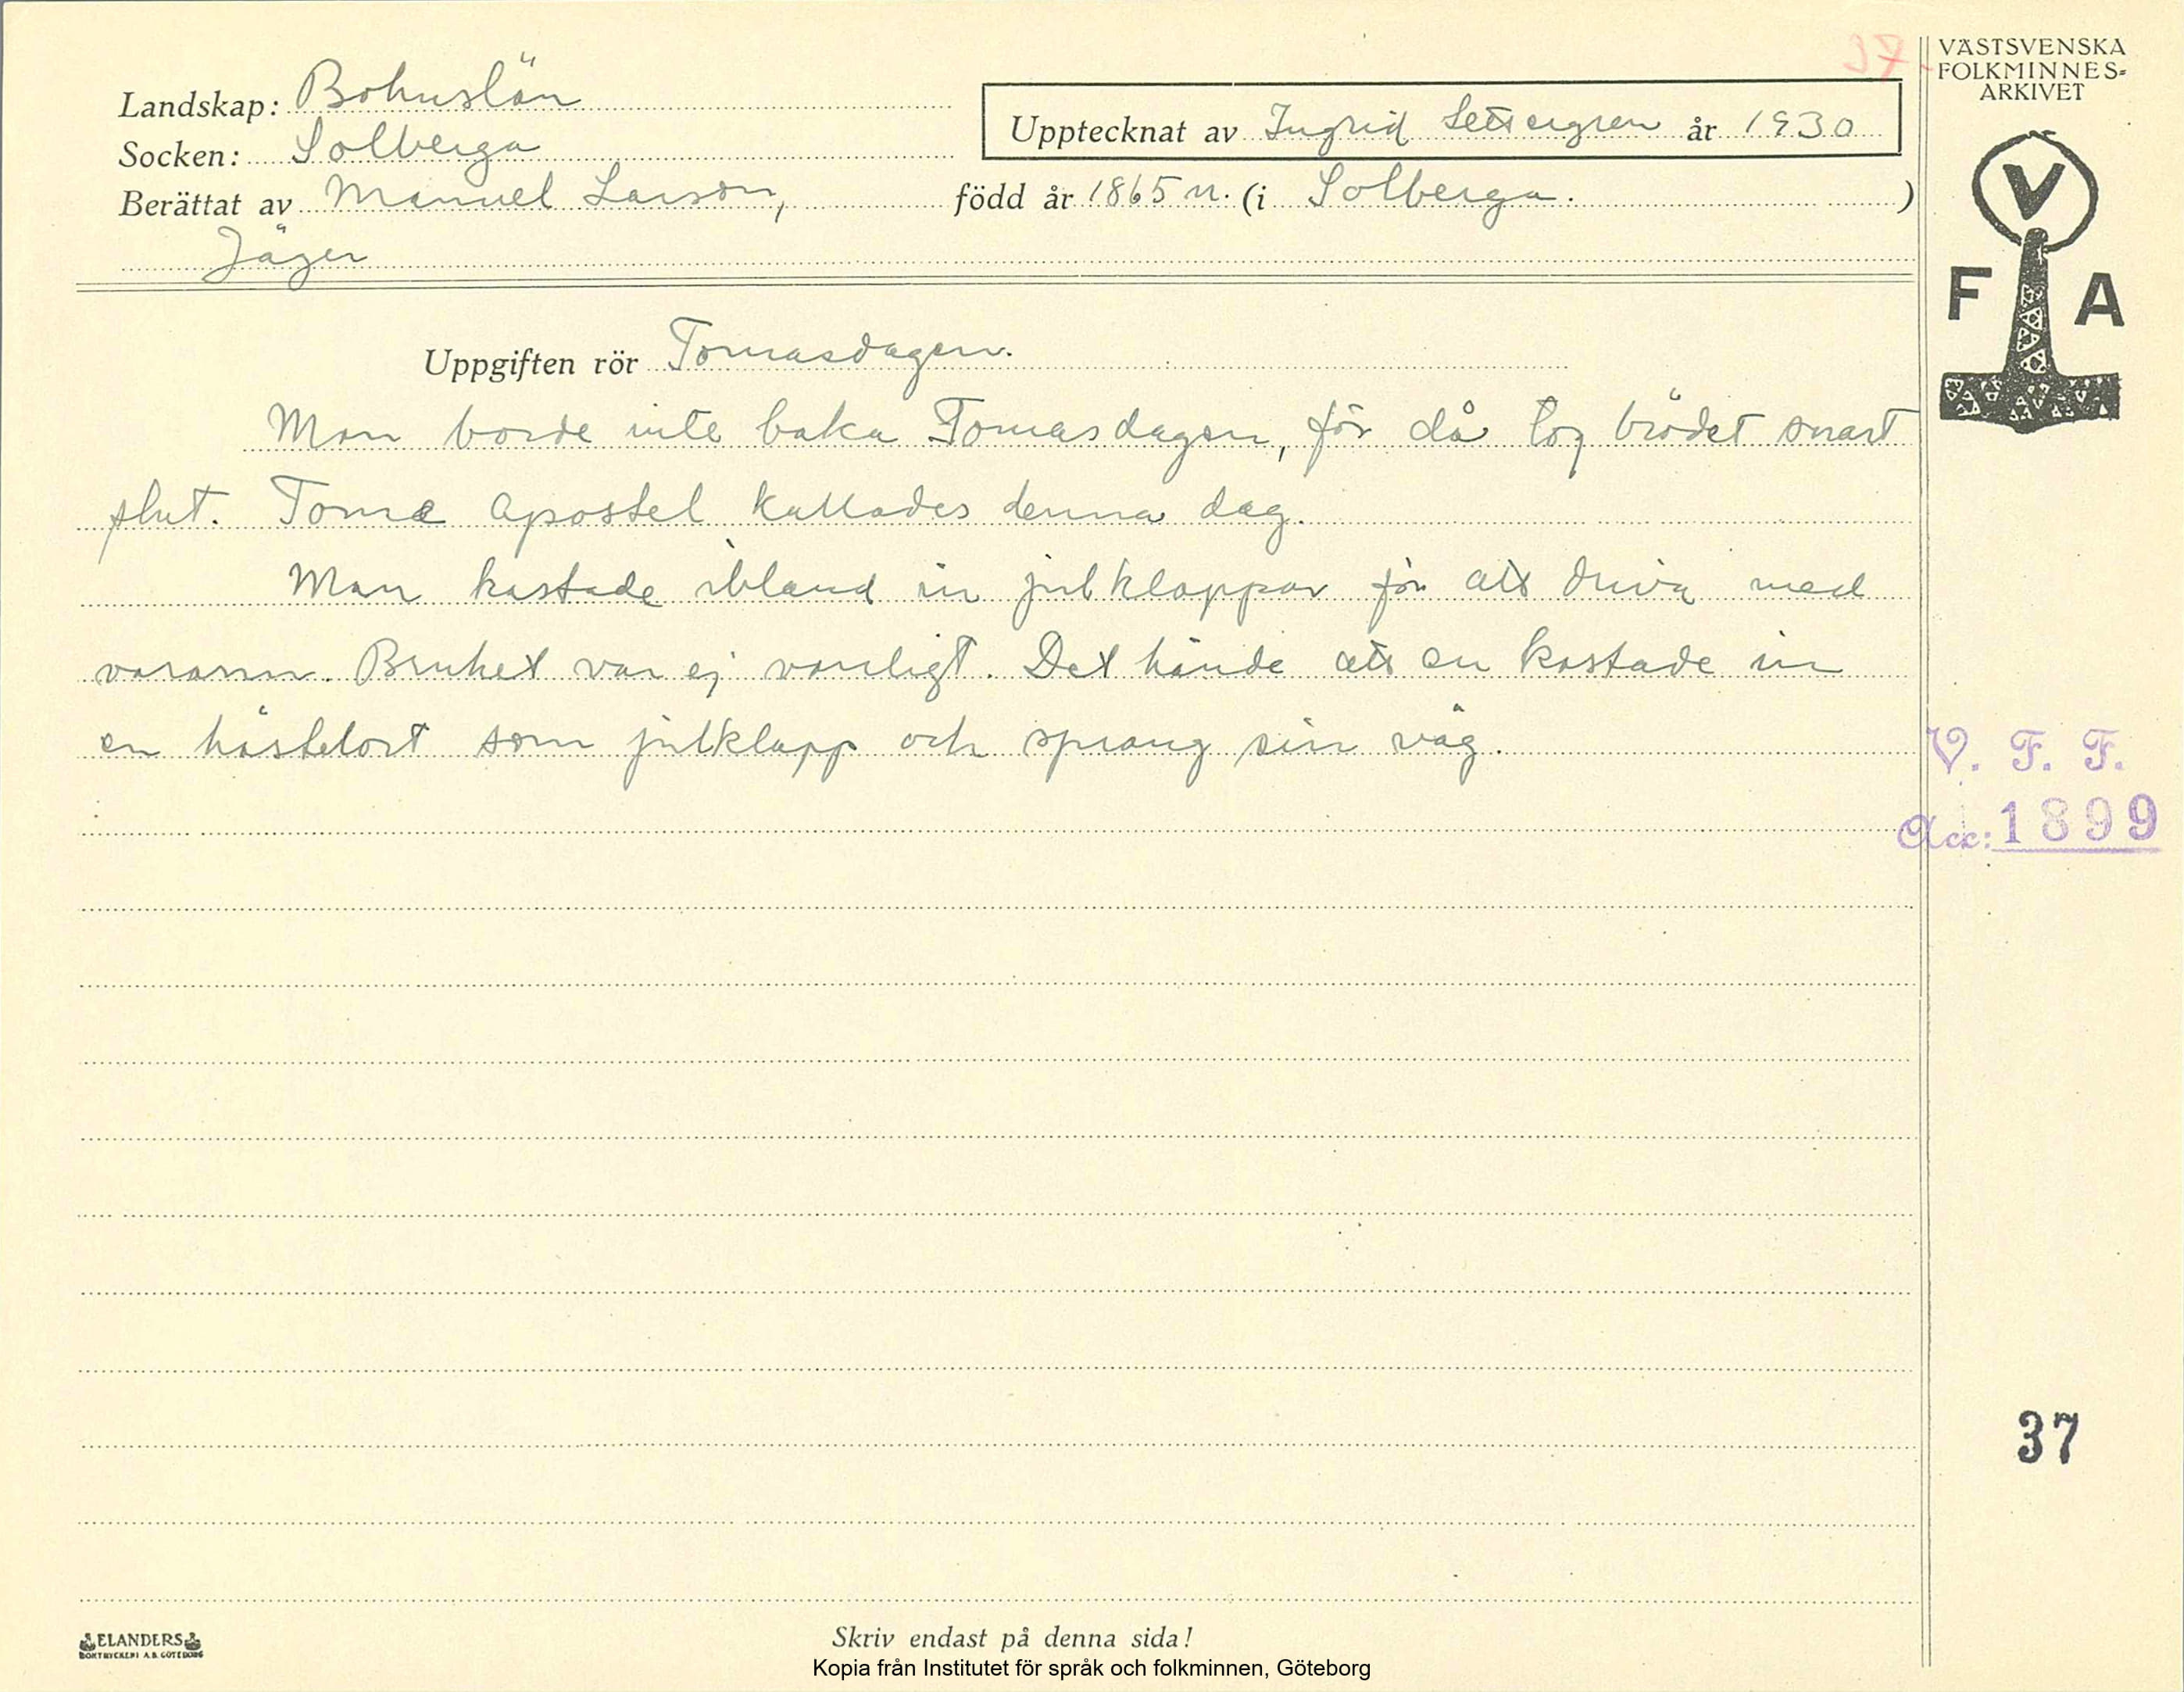 37
VÄSTSVENSKA
FOLKMINNES-
ARKIVET
Landskap: Bohuslän
Upptecknat av Ingrid Settergren år 1930
Socken: Solberga
Berättat av Manuel Larson, född år 1865 n. (i Solberga. )
Jäger
V
F A
Uppgiften rör Tomasdagen.
Man borde inte baka Tomasdagen, för då tog brödet snart
slut. Tome apostel kallades denna dag.
Man kastade ibland in julklappar för att driva med
varann. Bruket var ej vanligt. Det hände att en kastade in
en hästelort som julklapp och sprang sin väg.
V. F. F.
Acc: 1899
37
ELANDERS
BOKTRYCKERI A.B. GÖTEBORG
Skriv endast på denna sida!
Kopia från Institutet för språk och folkminnen, Göteborg